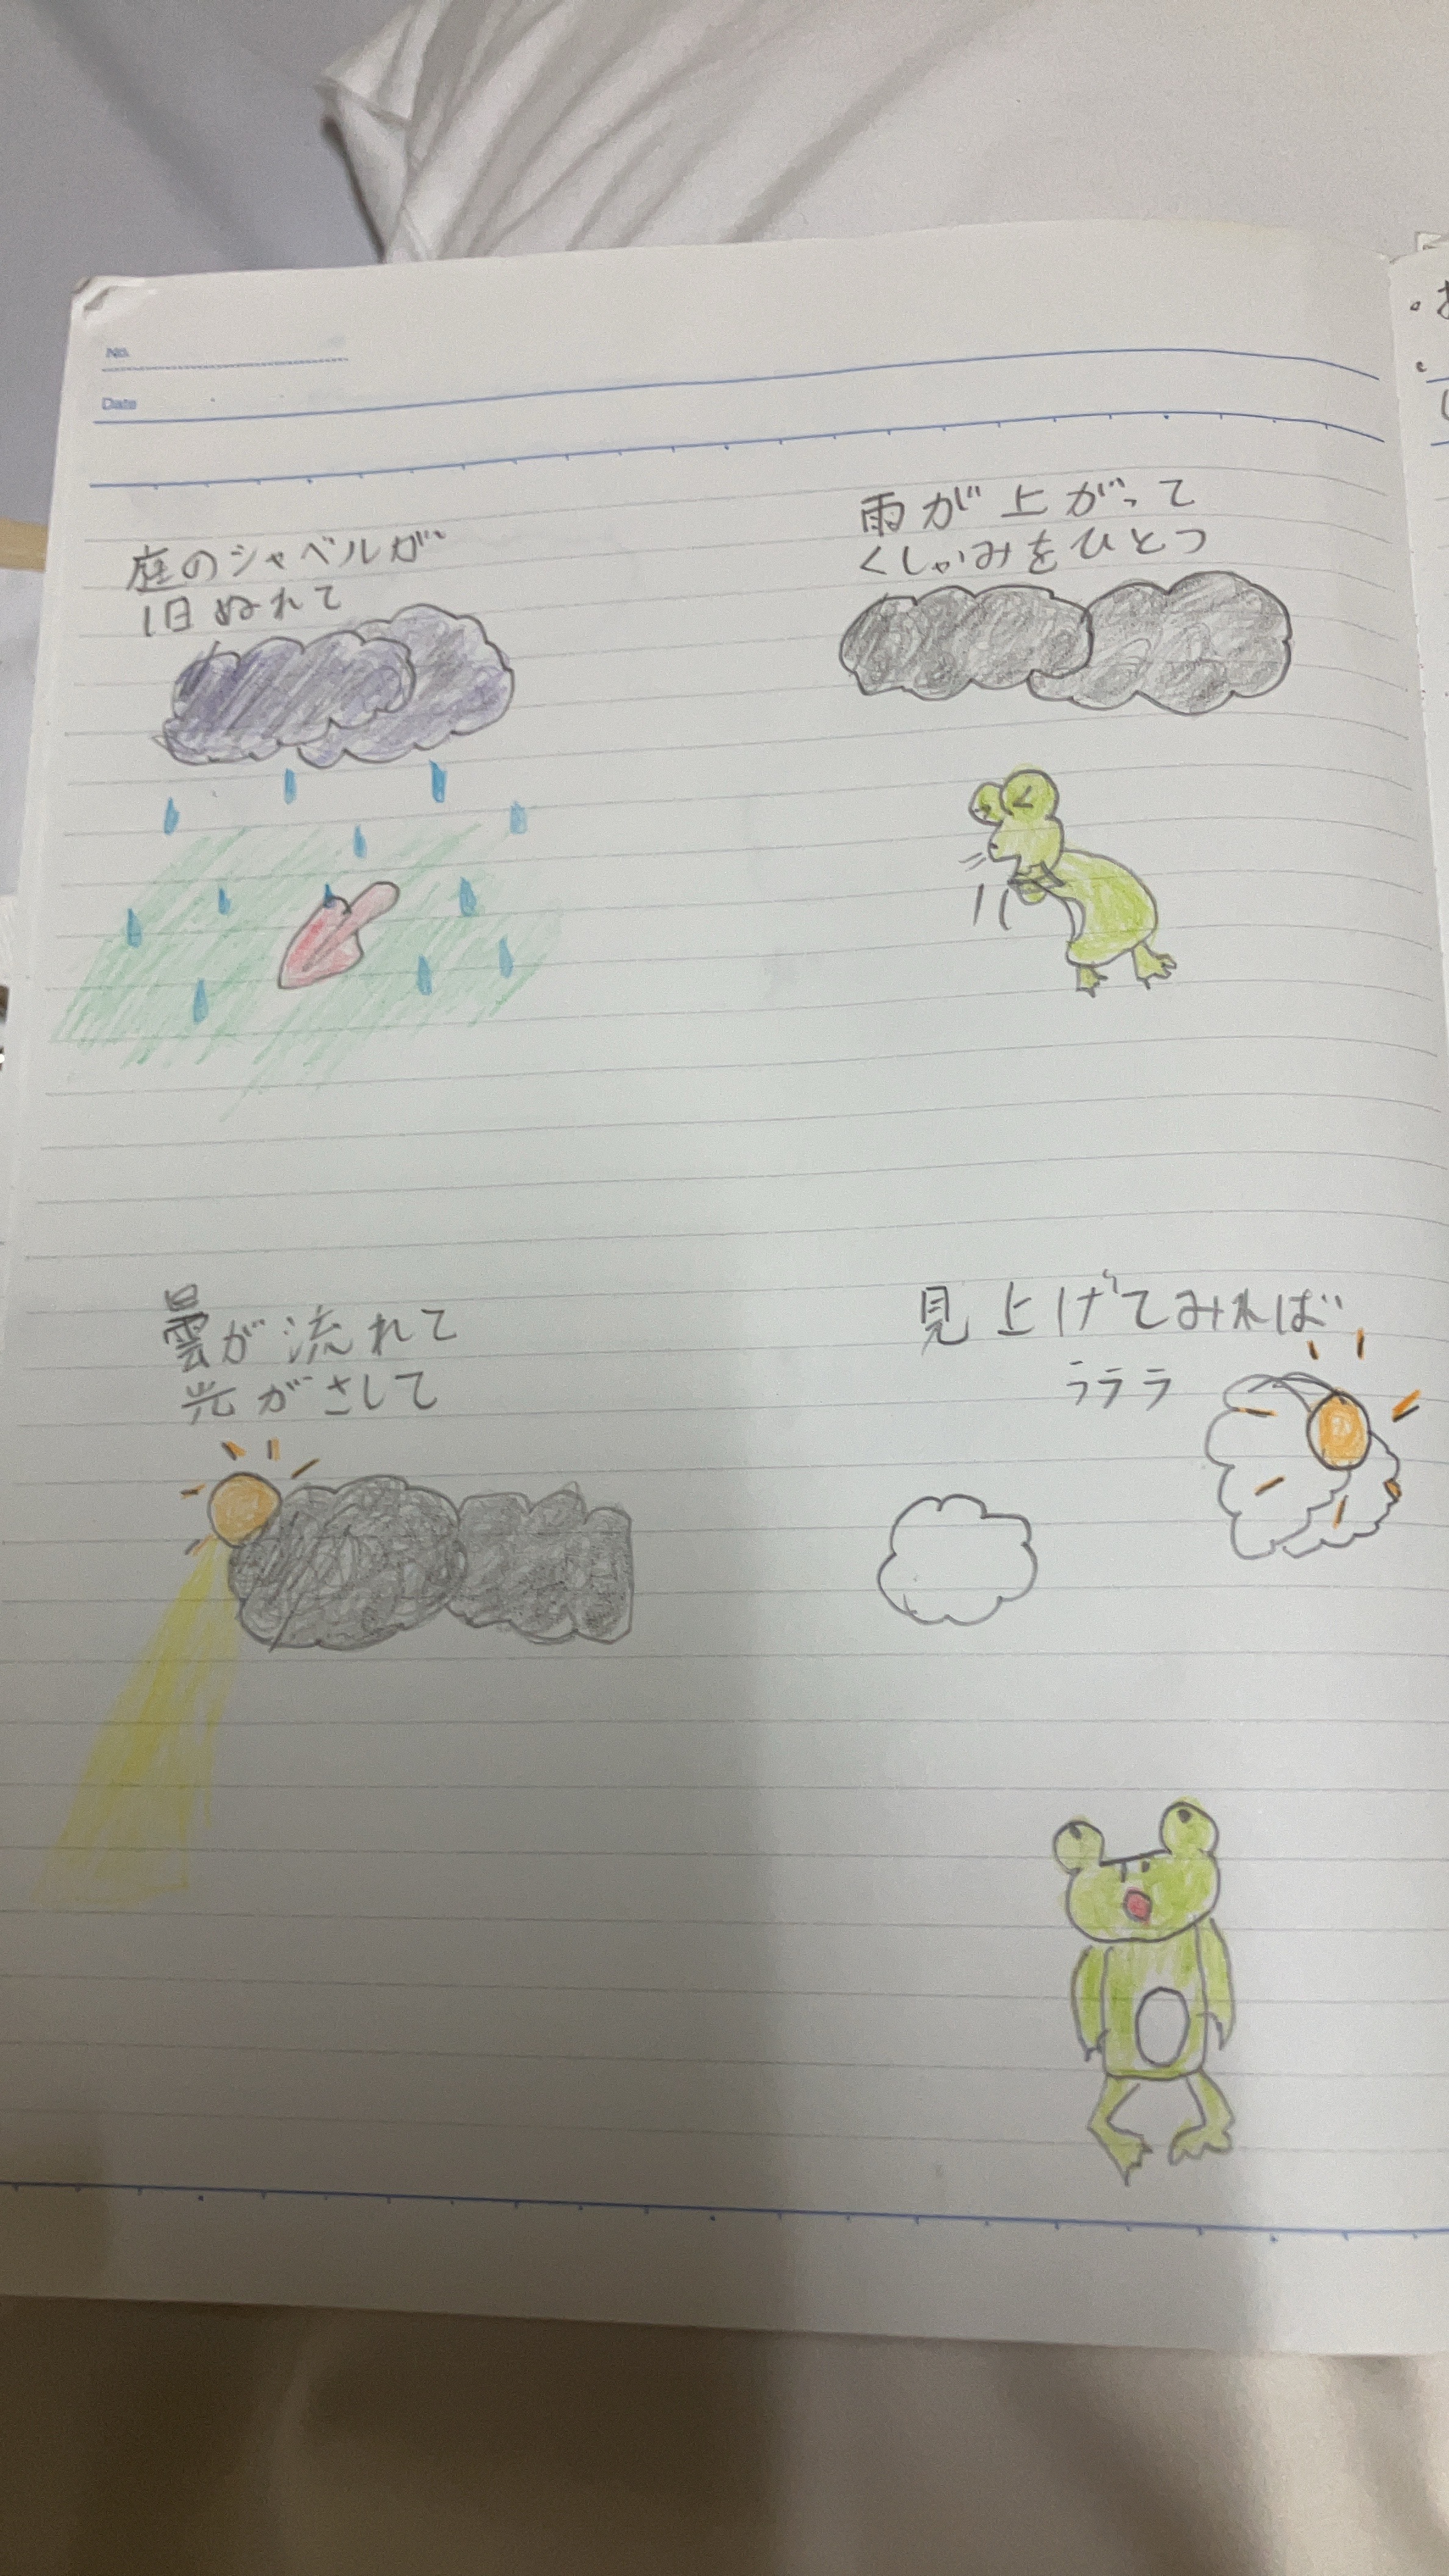 No.
Date
庭のシャベルが
1日ぬれて
雨が上がって
くしゃみをひとつ
曇が流れて
光がさして
見上げてみれば
ラララ